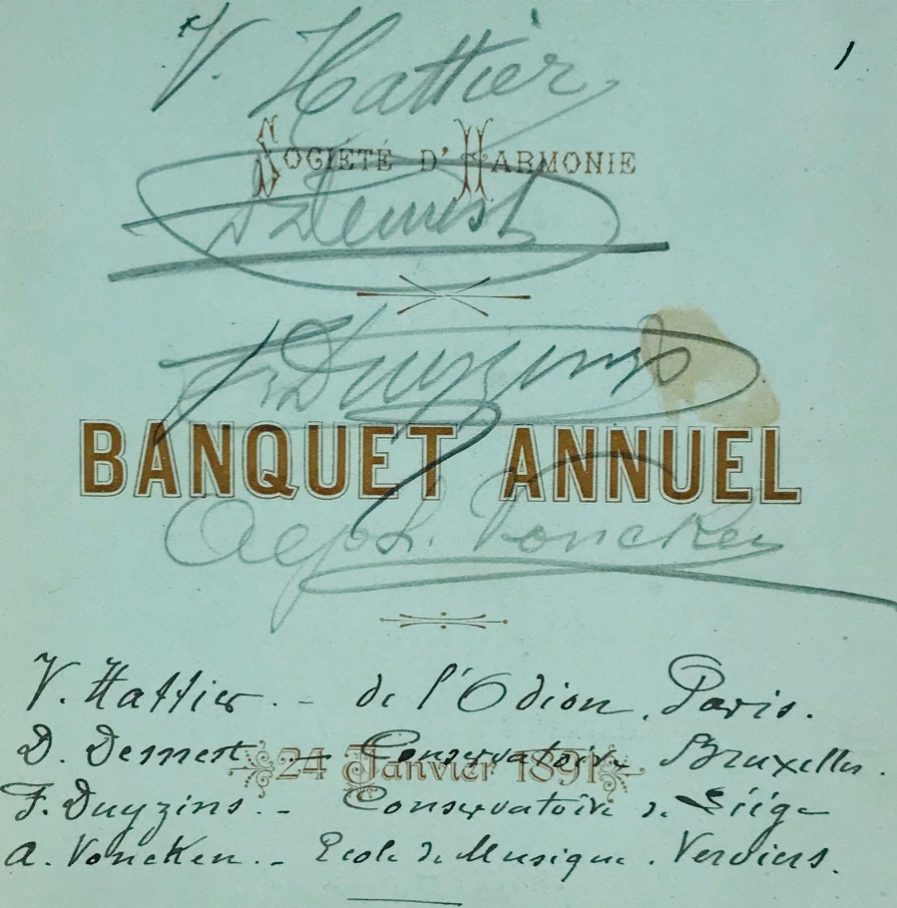 V. Hattier
1
SOCIÉTÉ D'HARMONIE
D Demest
F. Duyzings
BANQUET ANNUEL
Alph. Voncken
V. Hattier. - de l'Odéon, Paris.
D. Demest - Conservatoire Bruxelles.
24 Janvier 1891
F. Duyzins. - Conservatoire de Liége
A. Voncken. - Ecole de Musique. Verviers.